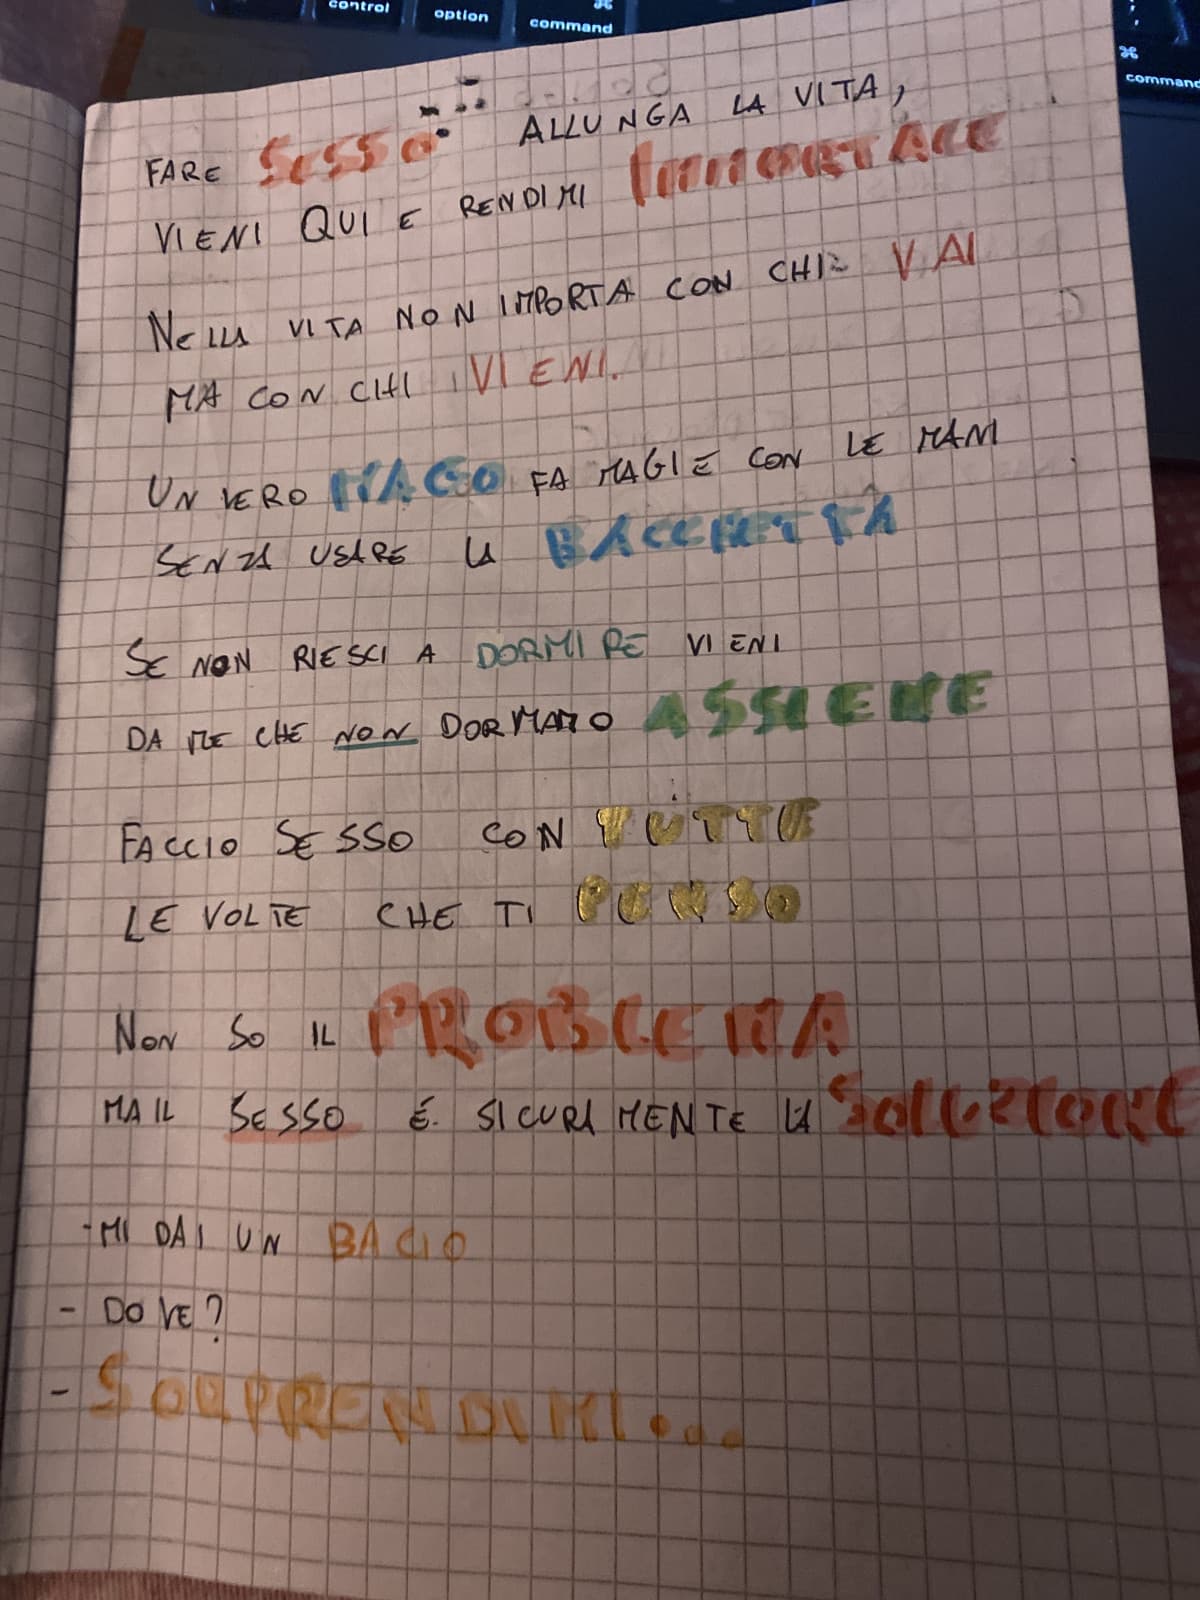 control
option
⌘
command
⌘
command
FARE SESSO ALLUNGA LA VITA,
VIENI QUI E RENDIMI IMMORTALE
NELLA VITA NON IMPORTA CON CHI VAI
MA CON CHI VIENI.
UN VERO MAGO FA MAGIE CON LE MANI
SENZA USARE LA BACCHETTA
SE NON RIESCI A DORMIRE VIENI
DA ME CHE NON DORMIAMO ASSIEME
FACCIO SESSO CON TUTTE
LE VOLTE CHE TI PENSO
NON SO IL PROBLEMA
MA IL SESSO É SICURAMENTE LA SOLUZIONE
-MI DAI UN BACIO
- DOVE?
- SORPRENDIMI...